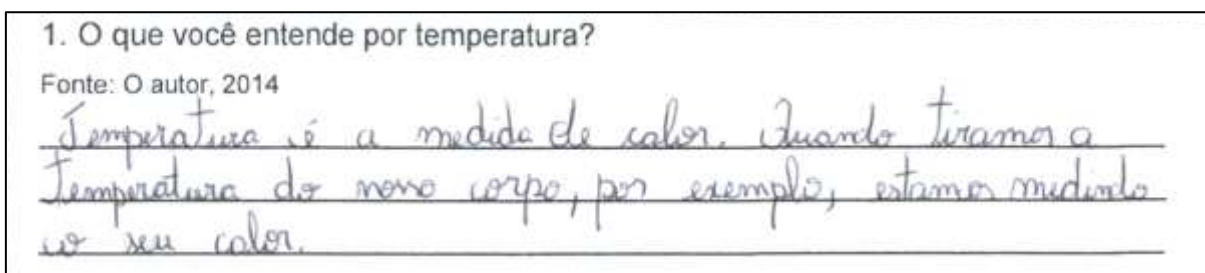 1. O que você entende por temperatura?
Fonte: O autor, 2014
Temperatura é a medida de calor. Quando tiramos a
Temperatura do nosso corpo, por exemplo, estamos medindo
o seu calor.